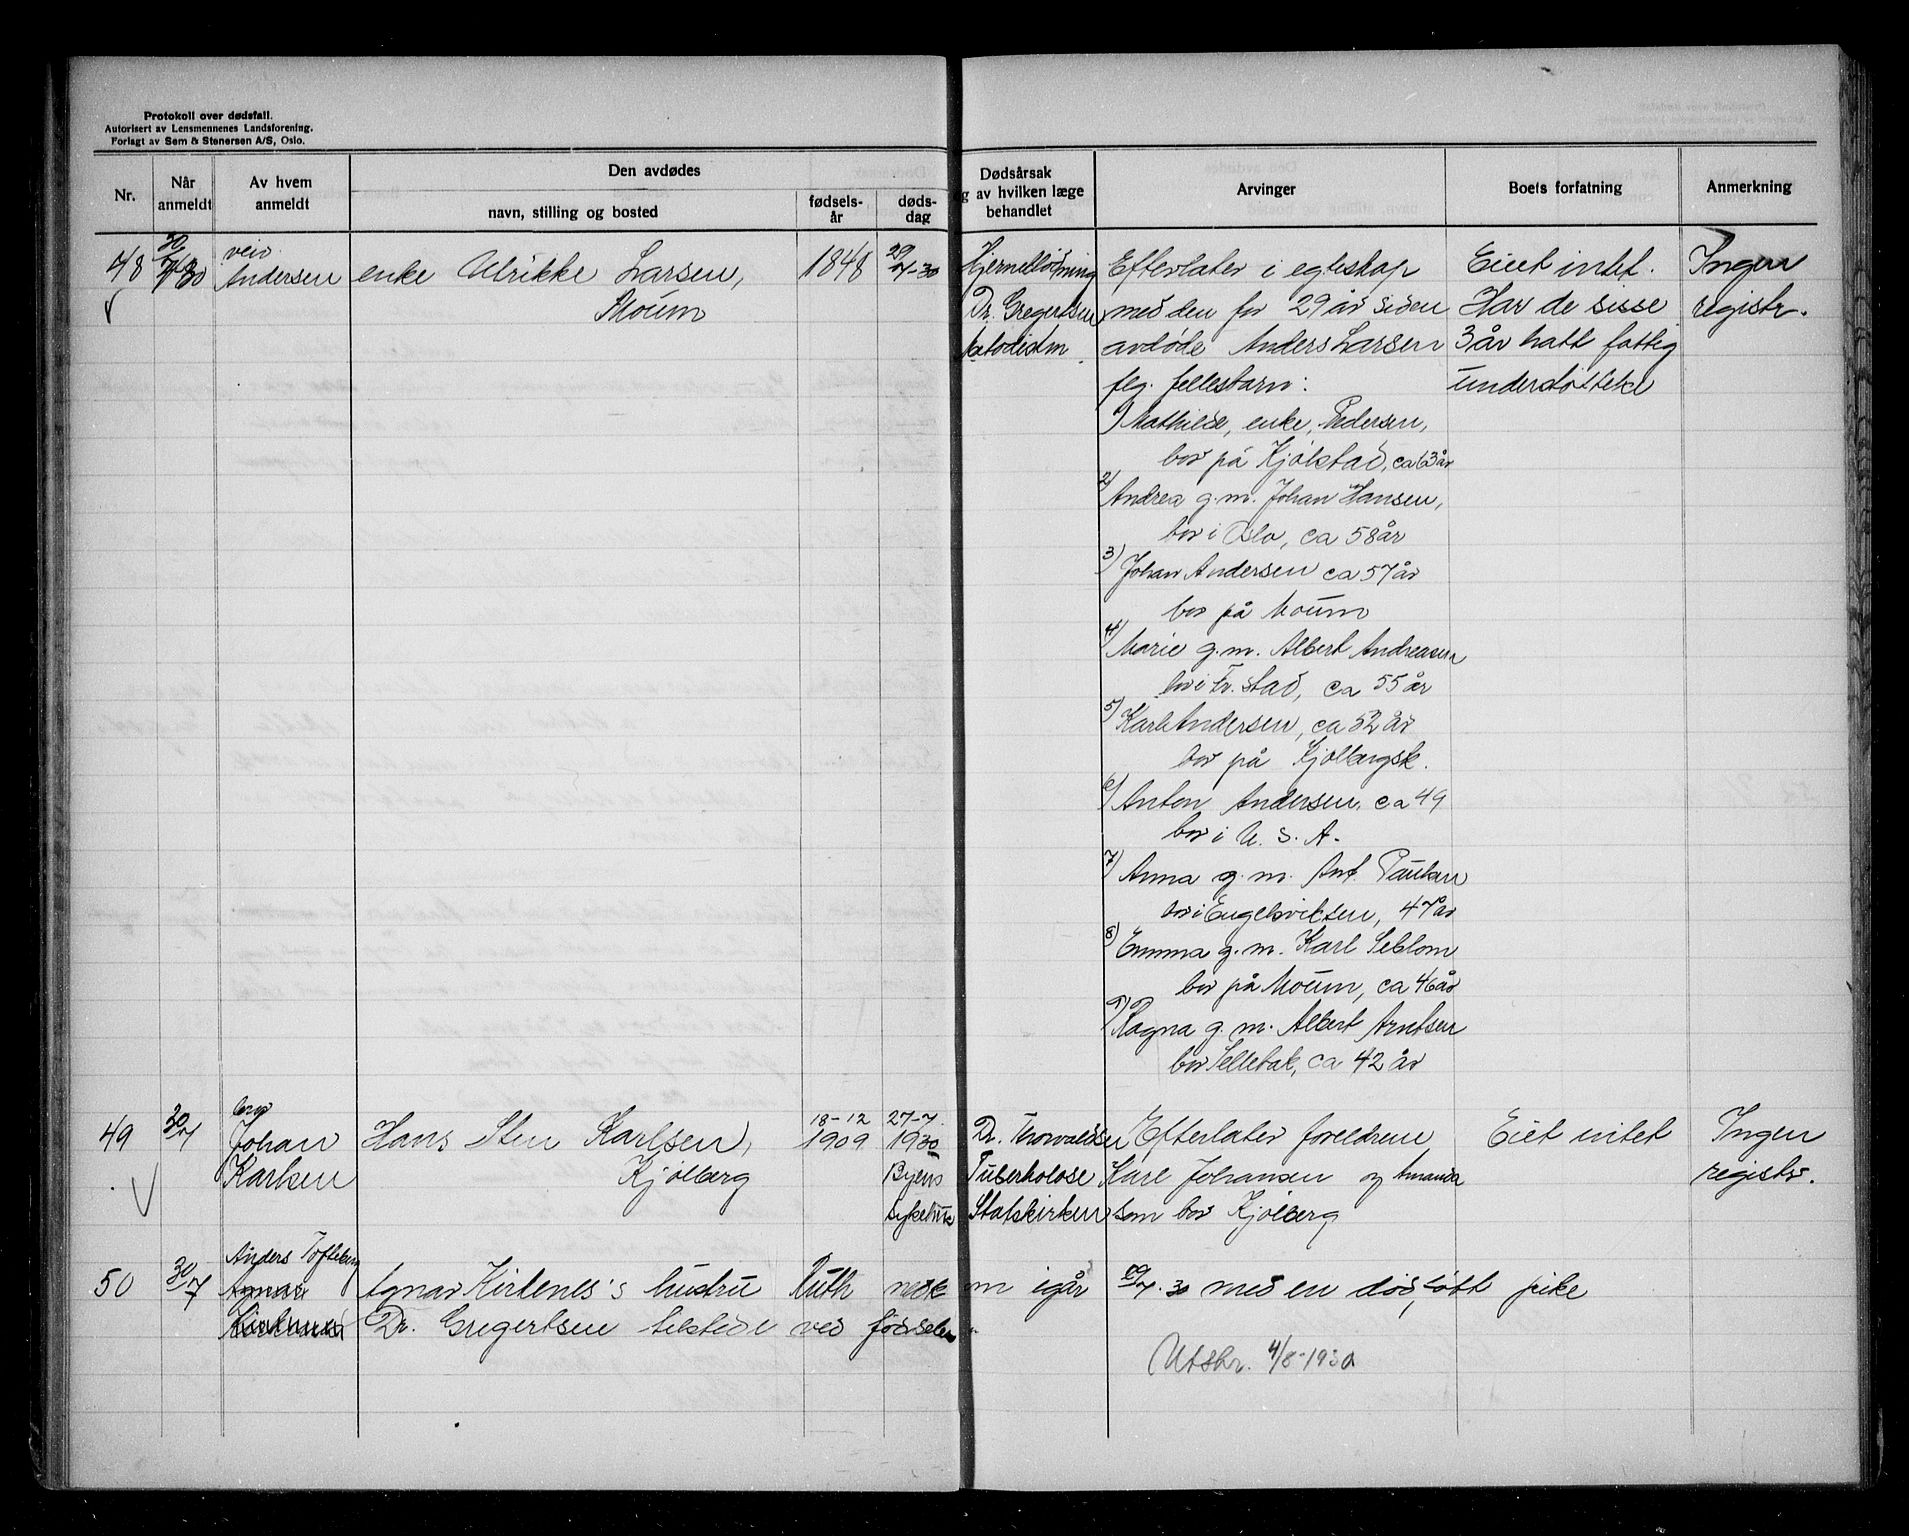 Protokoll over dødsfall.
Autorisert av Lensmennenes Landsforening.
Forlagt av Sem & Stenersen A/S, Oslo.
Nr.
Når anmeldt
Av hvem anmeldt
Den avdødes
navn, stilling og bosted
fødsels-år
døds-dag
Dødsårsak
g av hvilken læge
behandlet
Arvinger
Boets forfatning
Anmerkning
48
30/7-30
Andersen
enke Ulrikke Larsen,
Moum
1848
29/7-30
Hjerneblødning
Dr. Gregertsen
Metodistm
Efterlater i egteskap
med den for 29 år siden
avdøde Anders Larsen
flg. fellesbarn:
1) Mathilde, enke, Pedersen,
bor på Kjølstad, ca 63 år
2) Andrea g.m. Johan Hansen,
bor i Oslo, ca 58 år
3) Johan Andersen ca 57 år
bor på Moum
4) Marie g.m. Albert Andreasen
bor i Fr.stad, ca 55 år
5) Karl Andersen, ca 52 år
bor på Kjølbergsk.
6) Anton Andersen, ca 49
bor i U. S. A.
7) Anna g.m. Ant. Paulsen
bor i Engelsviken, 47 år
8) Emma g.m. Karl
bor på Moum, ca 46 år
9) Ragna g.m. Albert Arntsen
bor Sellebak, ca 42 år
Eiet intet.
Har de sisse
3 år hatt fattig
understøttelse
Ingen
registr.
49
30/7
bror
Johan
Karlsen
Hans Sten Karlsen,
Kjølberg
18-12
1909
27-7
1930
Byens
sykehus
Dr. Thorvaldsen
Tuberkolose
Statskirken
Efterlater foreldrene
Karl Johansen og Amanda
som bor Kjølberg
Eiet intet
Ingen
registr.
50
30/7
Anders Tofteberg
Agnar
Agnar Kirkenes's hustru Ruth nedkom igår 29/7.30 med en dødfødt pike
Dr. Gregertsen tilstede ved fødselen.
Utskr. 4/8-1930